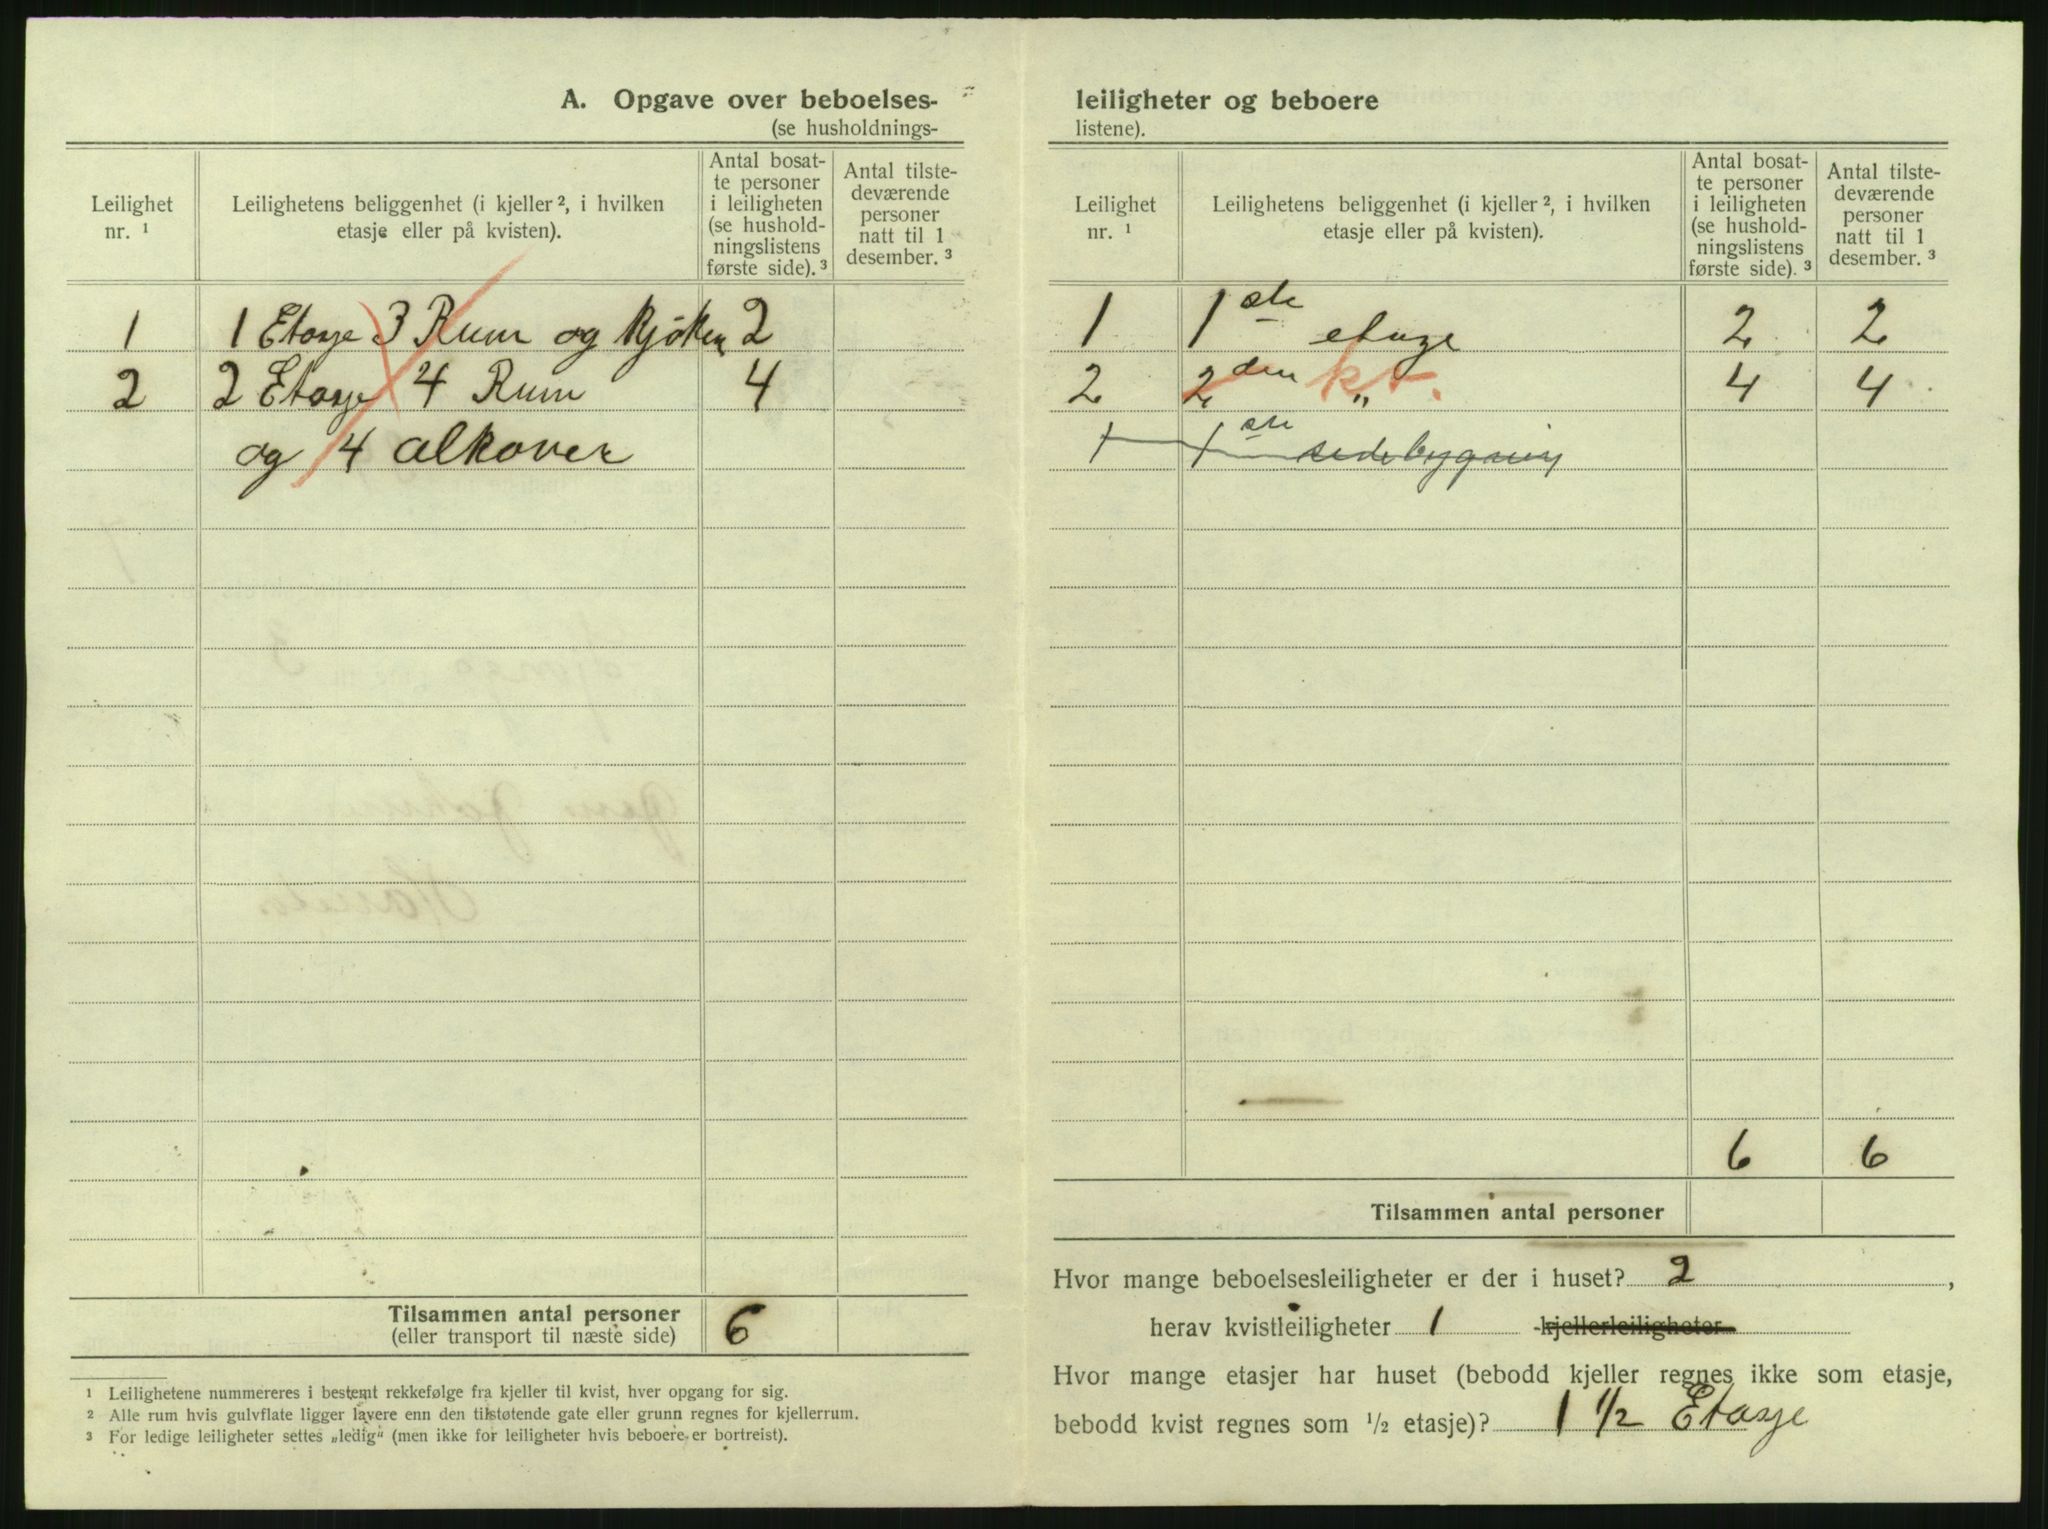 A. Opgave over beboelses-
(se husholdnings-
Leilighet nr. ¹
Leilighetens beliggenhet (i kjeller ², i hvilken etasje eller på kvisten).
Antal bosat-
te personer
i leiligheten
(se hushold-
ningslistens
første side). ³
Antal tilste-
deværende
personer
natt til 1
desember. ³
1 1 Etasje 3 Rum og kjøken 2
2 2 Etasje 4 Rum 4
og 4 alkover
Tilsammen antal personer 6
(eller transport til næste side)
¹ Leilighetene nummereres i bestemt rekkefølge fra kjeller til kvist, hver opgang for sig.
² Alle rum hvis gulvflate ligger lavere enn den tilstøtende gate eller grunn regnes for kjellerrum.
³ For ledige leiligheter settes „ledig“ (men ikke for leiligheter hvis beboere er bortreist).
leiligheter og beboere
listene).
Leilighet nr. ¹
Leilighetens beliggenhet (i kjeller ², i hvilken etasje eller på kvisten).
Antal bosat-
te personer
i leiligheten
(se hushold-
ningslistens
første side). ³
Antal tilste-
deværende
personer
natt til 1
desember. ³
1 1ste etage 2 2
2 2den „ kv. 4 4
1 1ste sidebygning
6 6
Tilsammen antal personer
Hvor mange beboelsesleiligheter er der i huset? 2 ,
herav kvistleiligheter 1 kjellerleiligheter
Hvor mange etasjer har huset (bebodd kjeller regnes ikke som etasje,
bebodd kvist regnes som ½ etasje)? 1 ½ Etasje